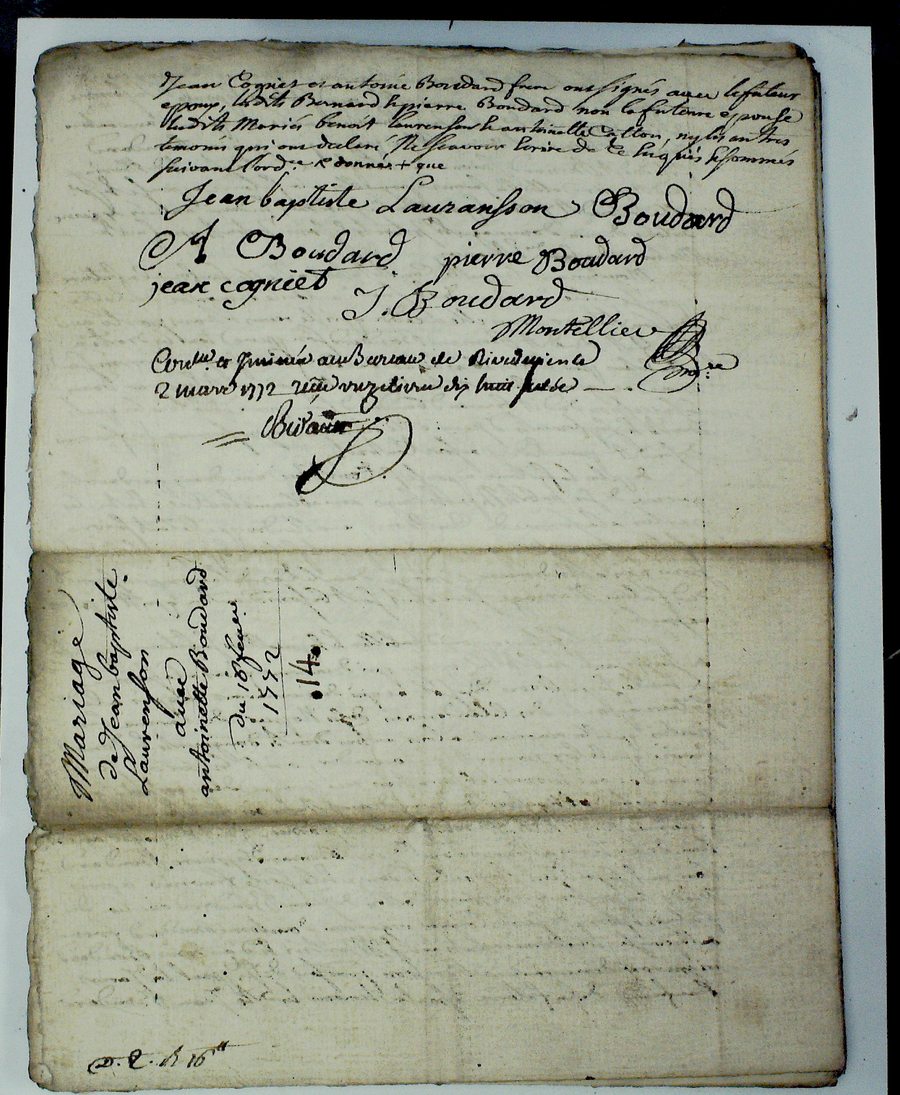 Jean Cogniet et antoine Boudard frere ont signés avec le futeur
epoux, lesdits Bernard & pierre Boudard non la futeure epouse
lesdits Mariés benoit Laurenson & antoinette Cotton, ny les autres
temoins qui ont declaré Ne scavoir Ecrire de Ce Enquis & sommés
suivant l'ord.ce & donnés + que
Jean baptiste Lauransson Boudard
A Boudard pierre Boudard
jean cogniet
J. Boudard
Montellier
no.re
au Bureau de
2 mars 1772 livre dix huit
Mariage
de Jean baptiste
Laurenson
avec
antoinette Boudard
du 18 fevrier
1772
.14.